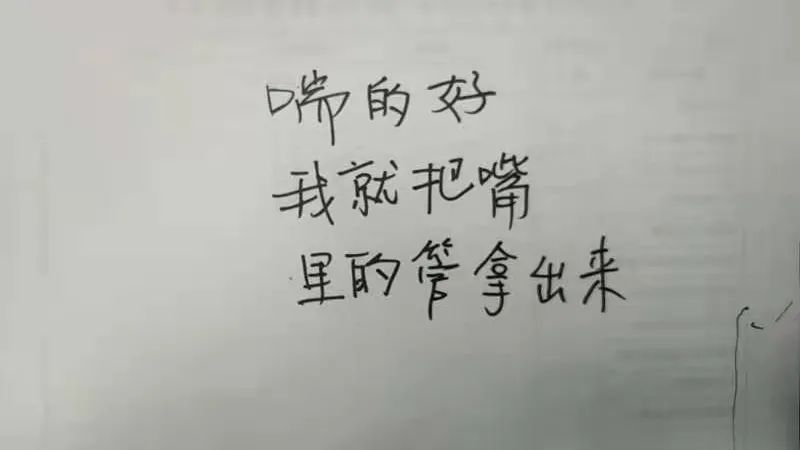 喘的好
我就把嘴
里的管拿出来